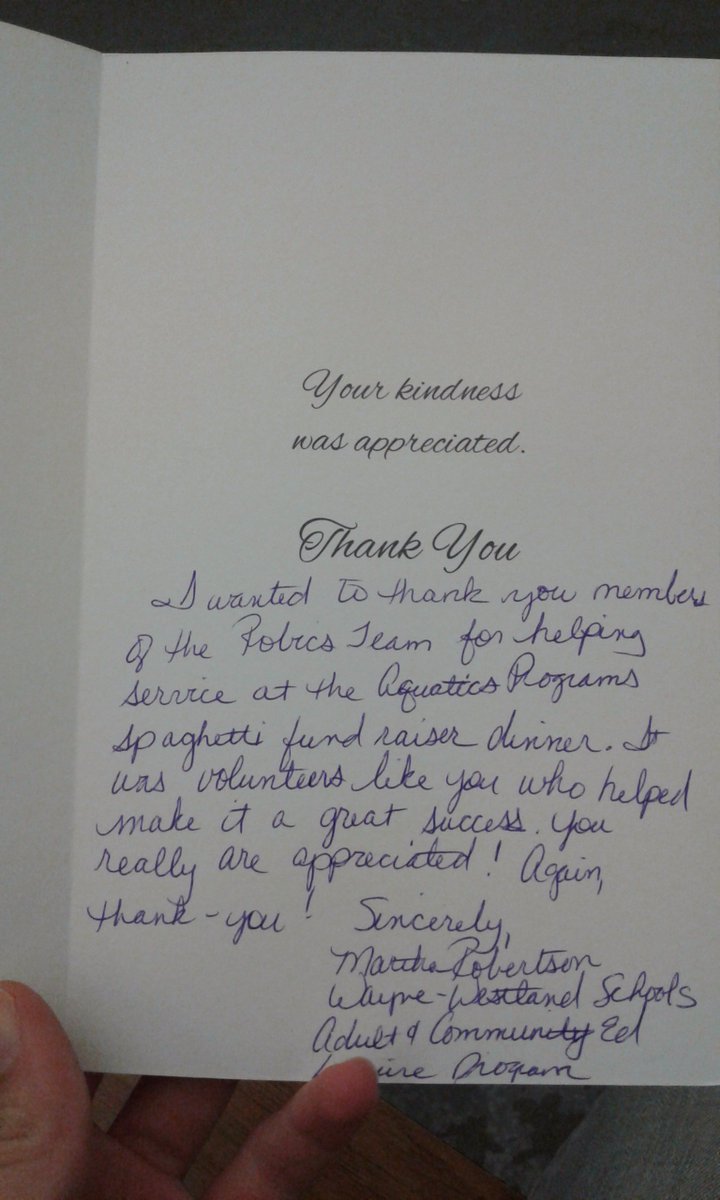 Your kindness
was appreciated.
Thank You
I wanted to thank you members
of the Robics Team for helping
service at the Aquatics Programs
spaghetti fund raiser dinner. It
was volunteers like you who helped
make it a great success. You
really are appreciated! Again,
thank-you! Sincerely,
Martha Robertson
Wayne-Westland Schools
Adult & Community Ed
Program